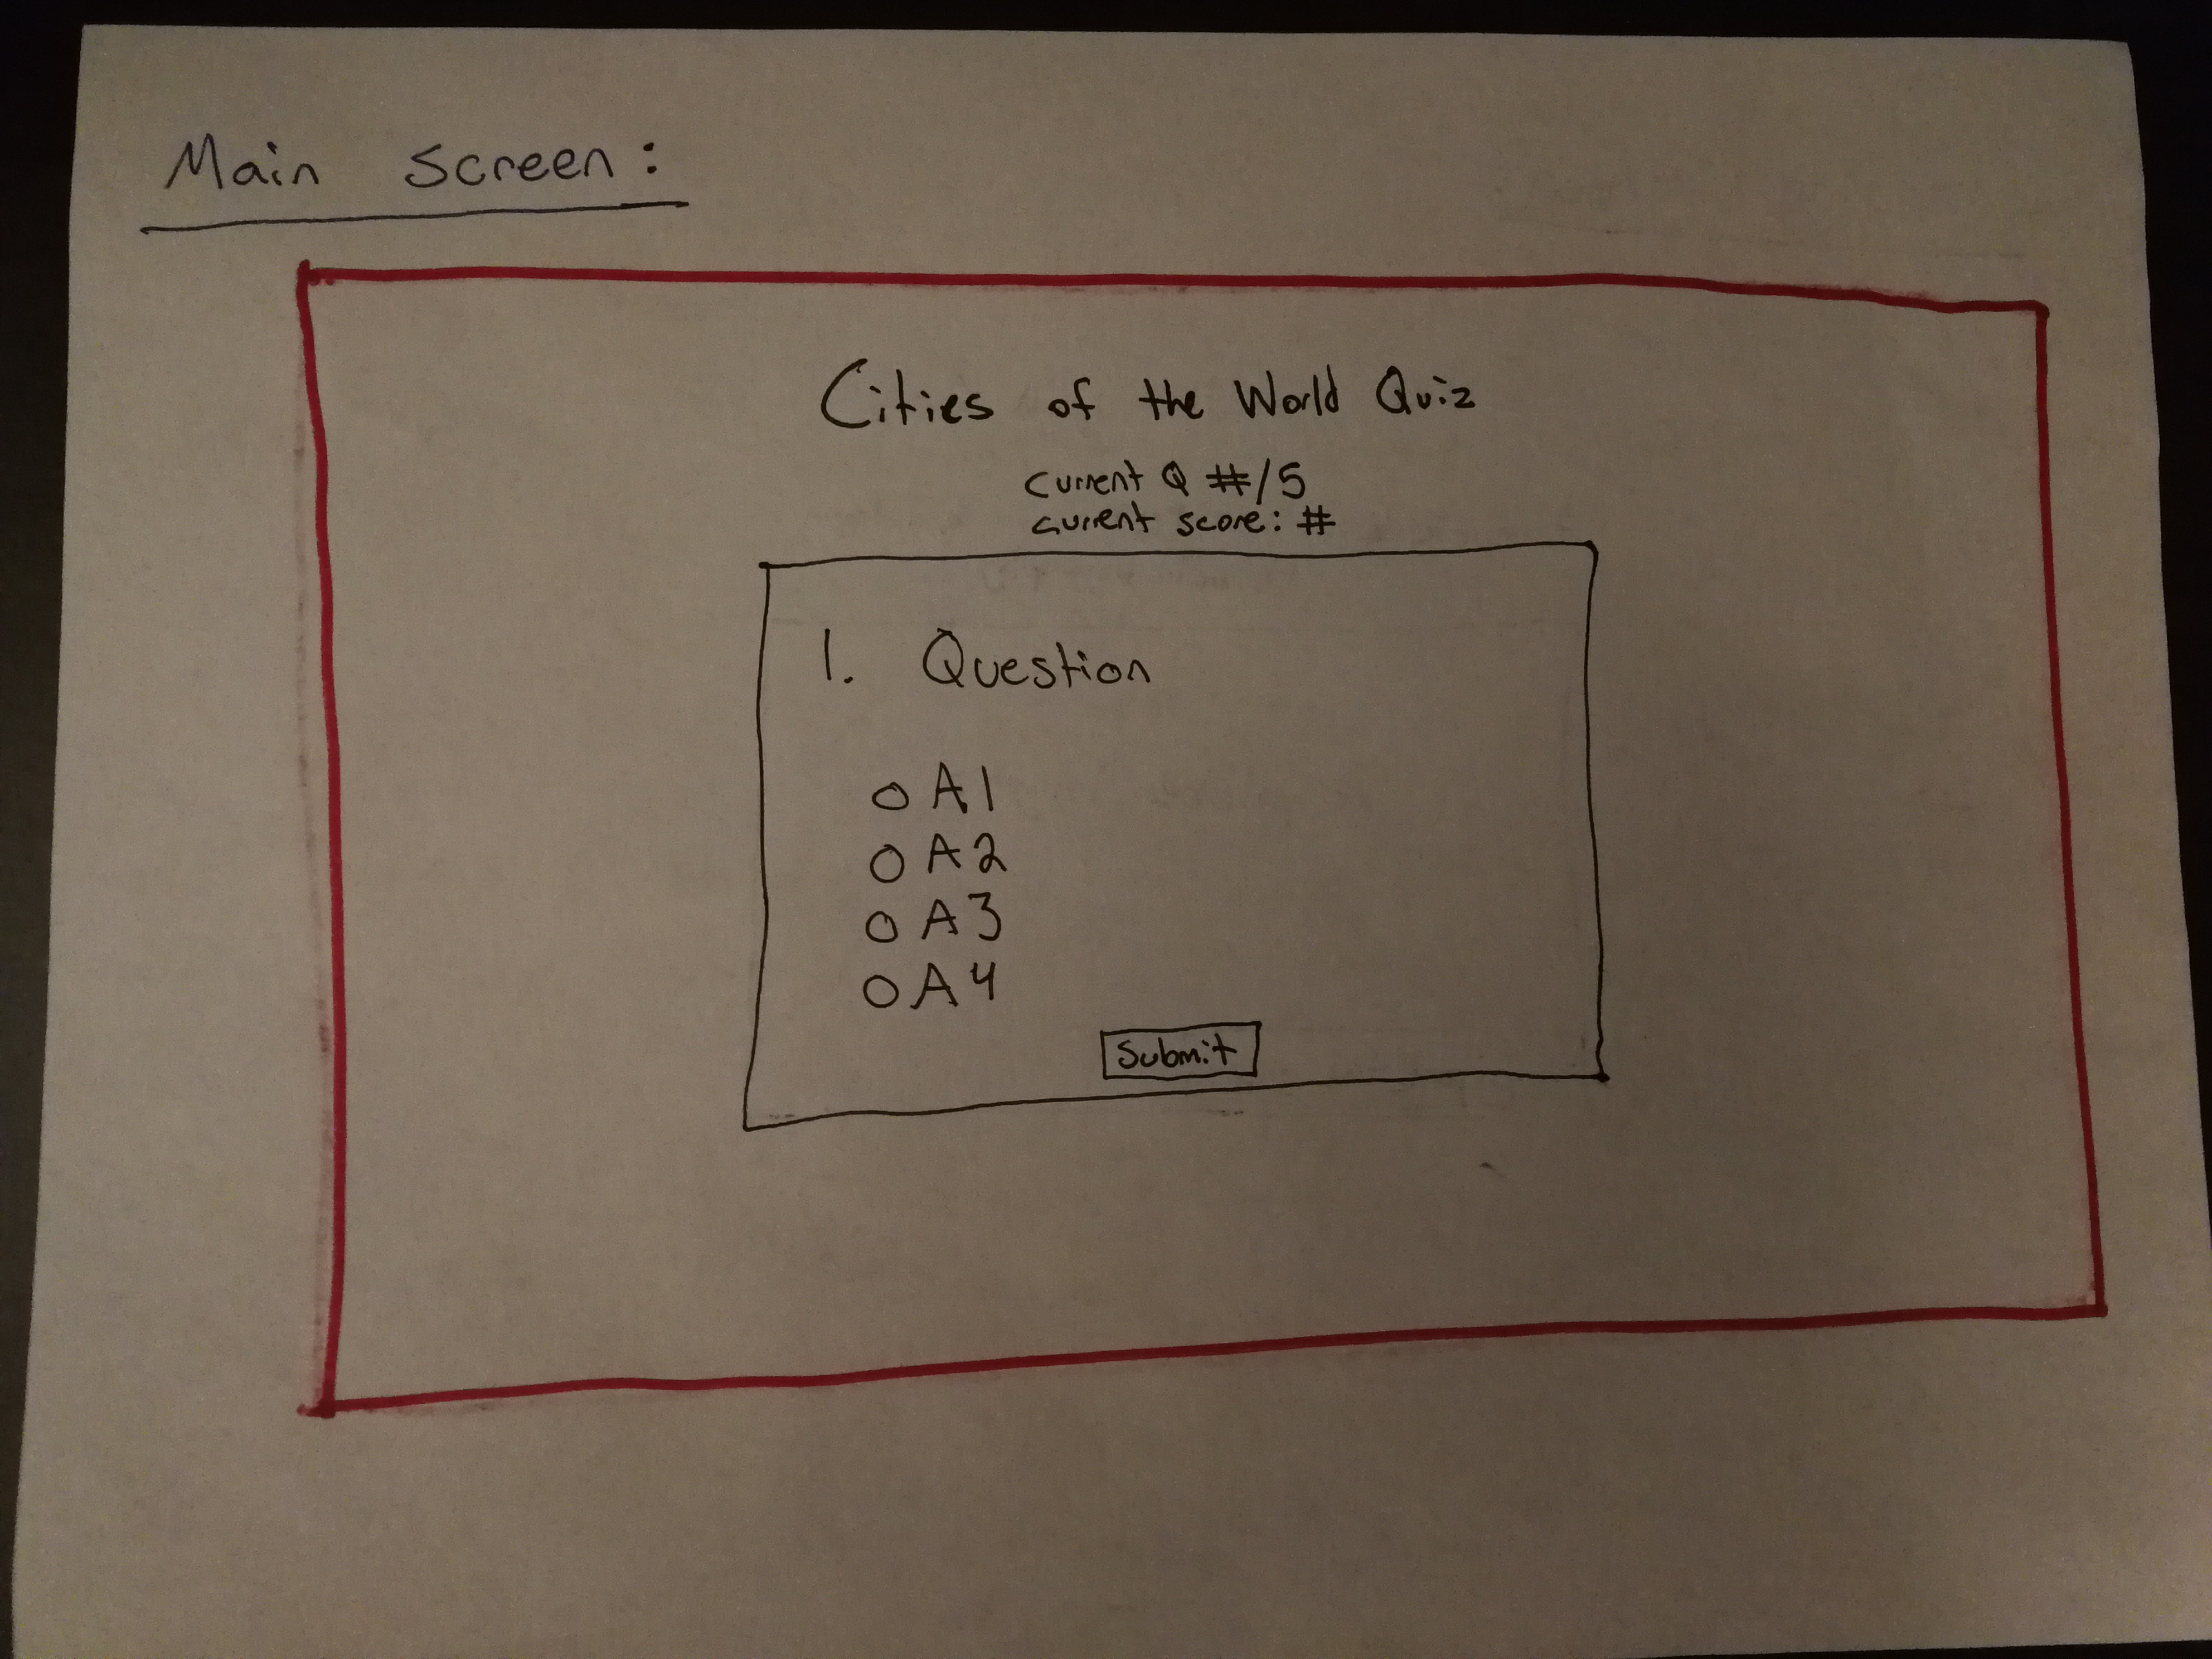 Main Screen:
Cities of the World Quiz
Current Q #/5
current score: #
1. Question
A1
A2
A3
A4
Submit